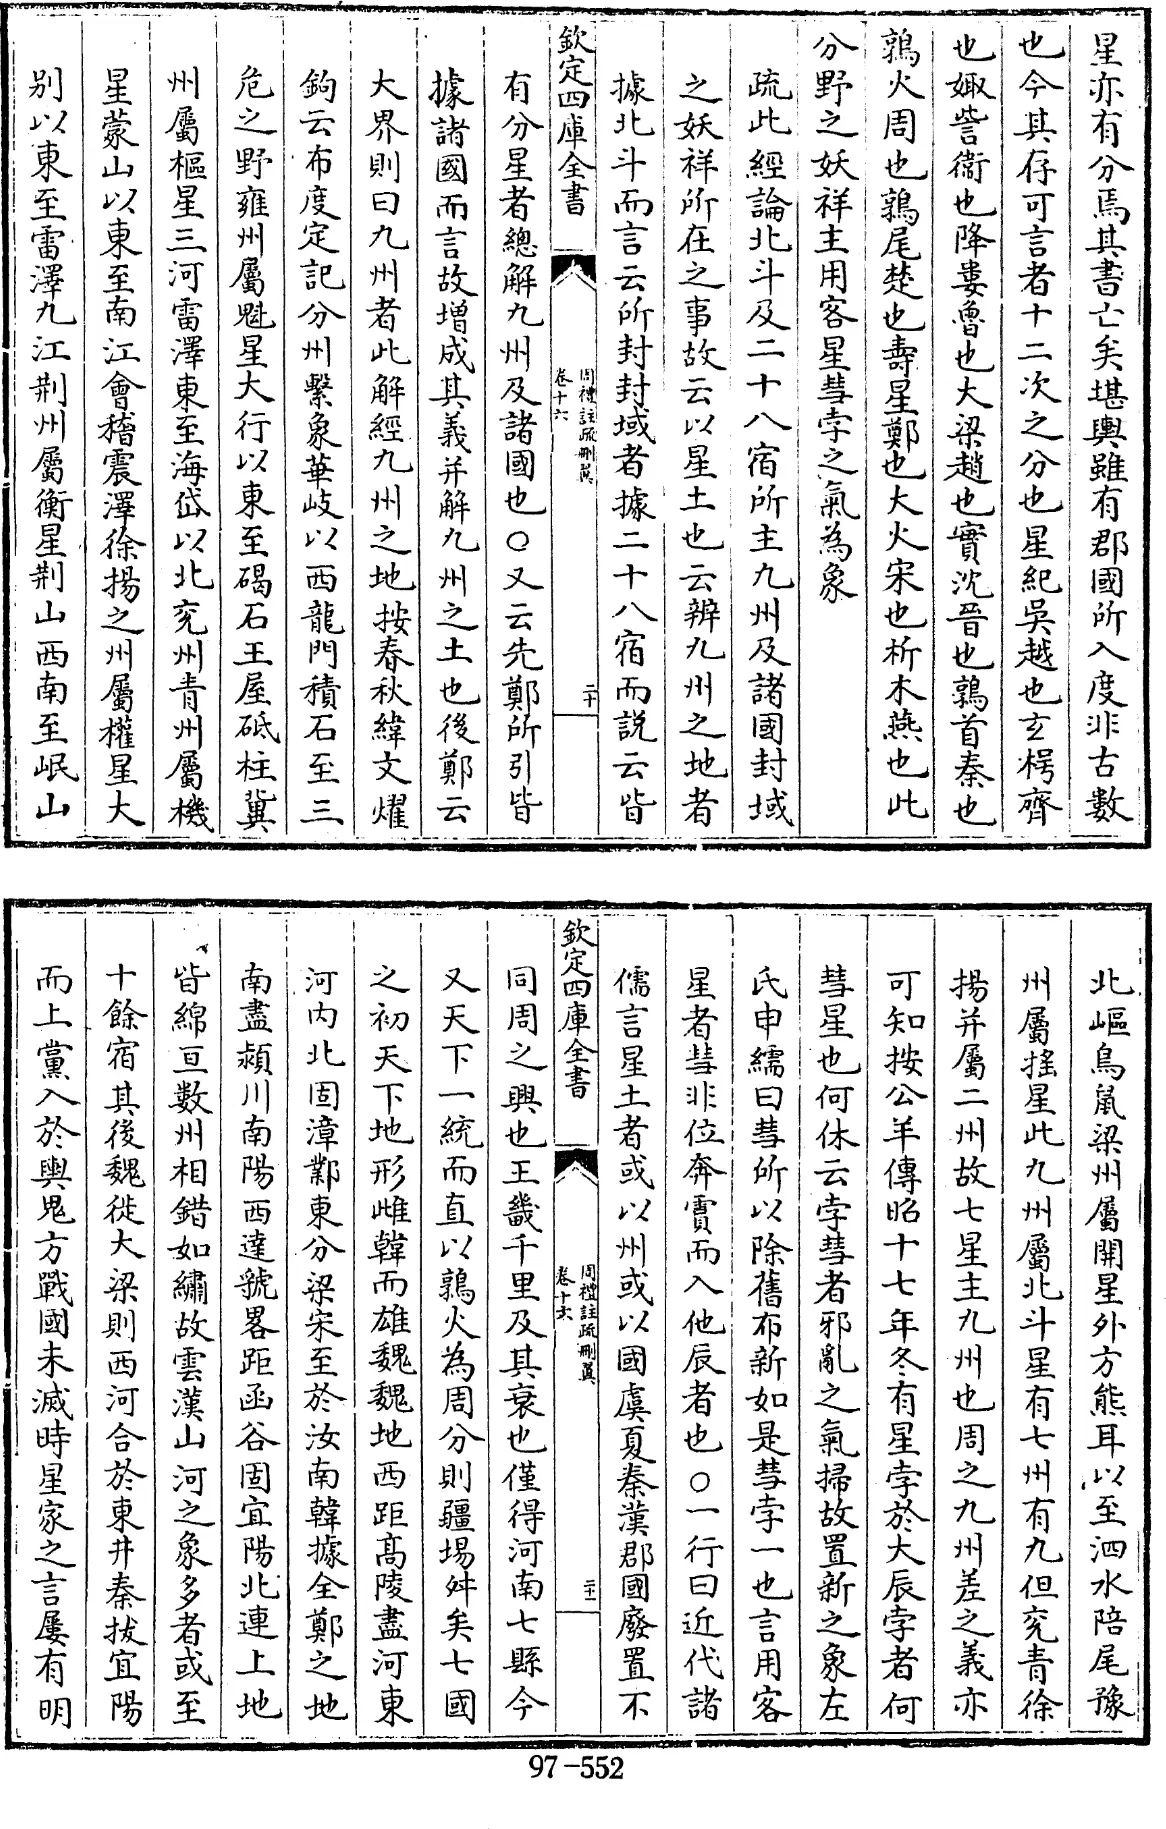 星亦有分焉其書亡矣堪輿雖有郡國所入度非古數
也今其存可言者十二次之分也星紀吳越也玄枵齊
也娵訾衞也降婁魯也大梁趙也實沈晉也鶉首秦也
鶉火周也鶉尾楚也壽星鄭也大火宋也析木燕也此
分野之妖祥主用客星彗孛之氣為象
疏此經論北斗及二十八宿所主九州及諸國封域
之妖祥所在之事故云以星土也云辨九州之地者
據北斗而言云所封封域者據二十八宿而説云皆
欽定四庫全書
周禮註疏刪翼
卷十六
二十
有分星者總解九州及諸國也○又云先鄭所引皆
據諸國而言故增成其義并解九州之土也後鄭云
大界則曰九州者此解經九州之地按春秋緯文燿
鉤云布度定記分州繫象華岐以西龍門積石至三
危之野雍州屬魁星大行以東至碣石王屋砥柱冀
州屬樞星三河雷澤東至海岱以北兗州青州屬機
星蒙山以東至南江會稽震澤徐揚之州屬權星大
别以東至雷澤九江荆州屬衡星荆山西南至岷山
北嶇鳥鼠梁州屬開星外方熊耳以至泗水陪尾豫
州屬摇星此九州屬北斗星有七州有九但兗青徐
揚并屬二州故七星主九州也周之九州差之義亦
可知按公羊傳昭十七年冬有星孛於大辰孛者何
彗星也何休云孛彗者邪亂之氣掃故置新之象左
氏申繻曰彗所以除舊布新如是彗孛一也言用客
星者彗非位奔霣而入他辰者也○一行曰近代諸
儒言星土者或以州或以國虞夏秦漢郡國廢置不
欽定四庫全書
周禮註疏刪翼
卷十六
二十一
同周之興也王畿千里及其衰也僅得河南七縣今
又天下一統而直以鶉火為周分則疆埸舛矣七國
之初天下地形雌韓而雄魏魏地西距高陵盡河東
河内北固漳鄴東分梁宋至於汝南韓據全鄭之地
南盡潁川南陽西達虢畧距函谷固宜陽北連上地
皆綿亘數州相錯如繡故雲漢山河之象多者或至
十餘宿其後魏徙大梁則西河合於東井秦拔宜陽
而上黨入於輿鬼方戰國未滅時星家之言屢有明
97-552